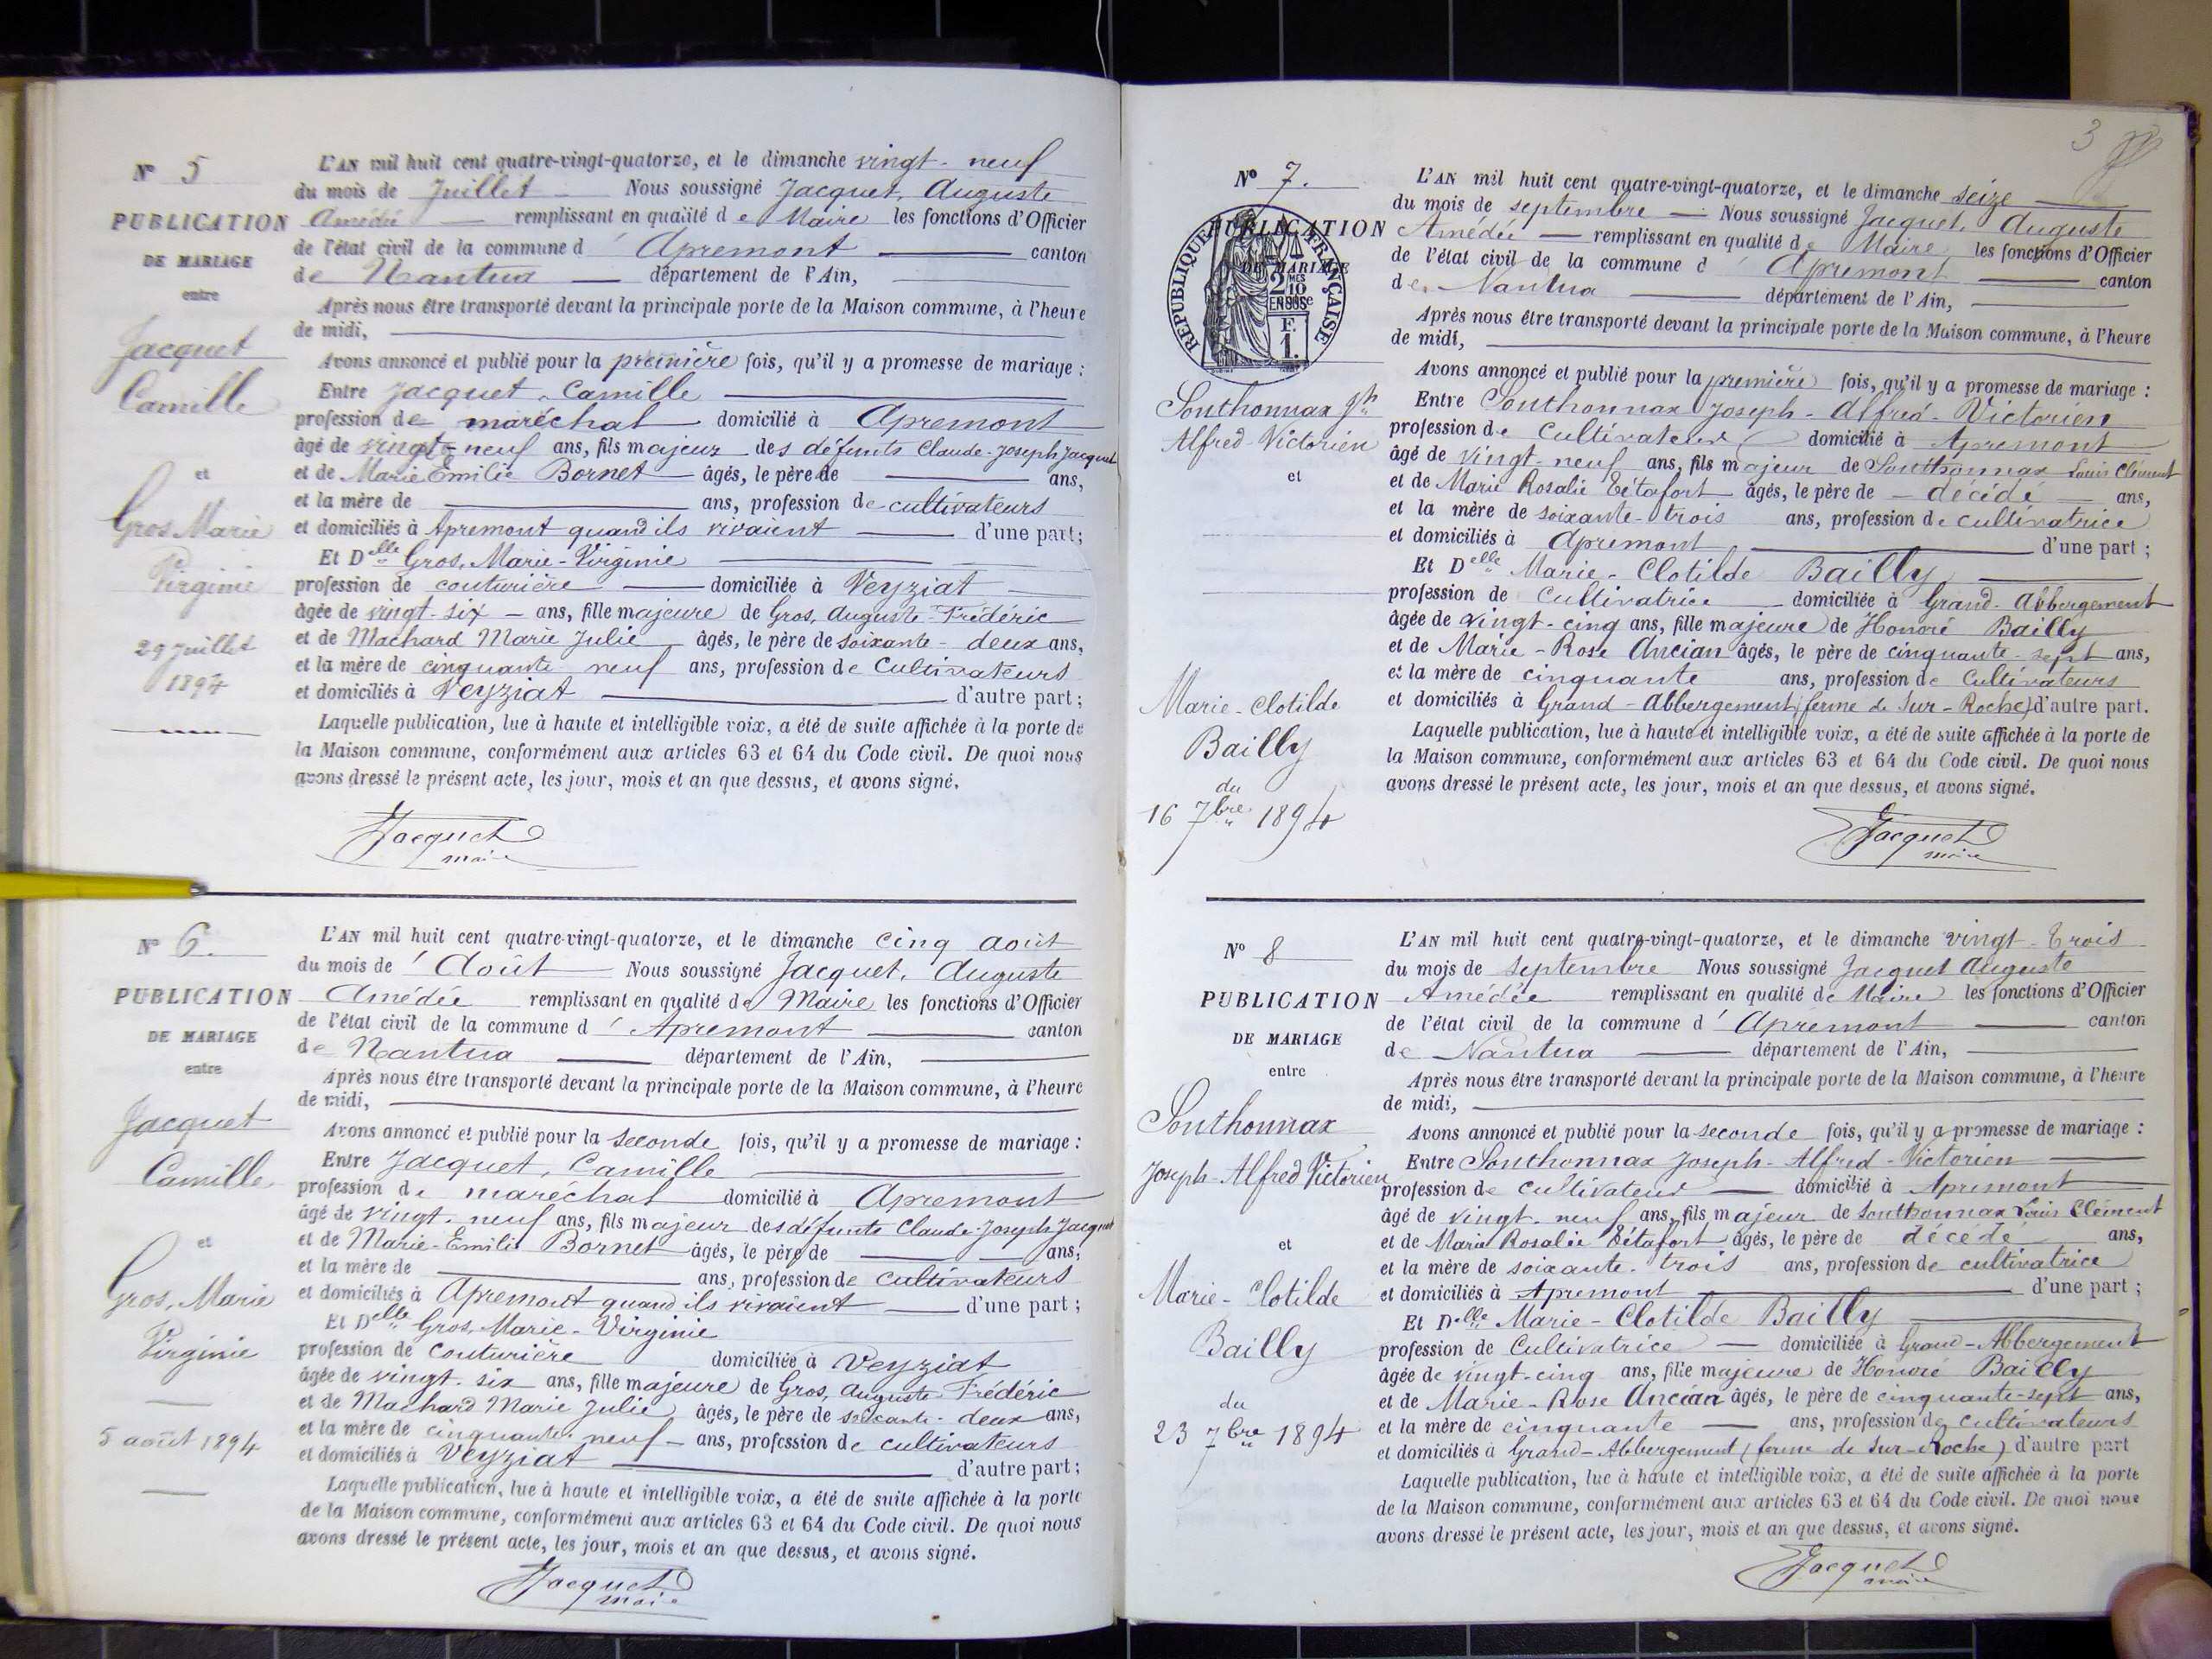 N° 5
PUBLICATION
DE MARIAGE
entre
Jacquet
Camille
et
Gros Marie
Virginie
29 Juillet
1894
L'AN mil huit cent quatre-vingt-quatorze, et le dimanche vingt-neuf
du mois de Juillet Nous soussigné Jacquet, Auguste
Amédée remplissant en qualité de Maire les fonctions d'Officier
de l'état civil de la commune d'Apremont canton
de Nantua département de l'Ain,
Après nous être transporté devant la principale porte de la Maison commune, à l'heure
de midi,
Avons annoncé et publié pour la première fois, qu'il y a promesse de mariage :
Entre Jacquet, Camille
profession de maréchal domicilié à Apremont
âgé de vingt-neuf ans, fils majeur des défunts Claude-Joseph Jacquet
et de Marie Emilie Bornet âgés, le père de ans,
et la mère de ans, profession de cultivateurs
et domiciliés à Apremont quand ils vivaient d'une part;
Et Delle Gros, Marie-Virginie
profession de couturière domiciliée à Veyziat
âgée de vingt-six ans, fille majeure de Gros, Auguste-Frédéric
et de Machard Marie Julie âgés, le père de soixante-deux ans,
et la mère de cinquante neuf ans, profession de Cultivateurs
et domiciliés à Veyziat d'autre part;
Laquelle publication, lue à haute et intelligible voix, a été de suite affichée à la porte de
la Maison commune, conformément aux articles 63 et 64 du Code civil. De quoi nous
avons dressé le présent acte, les jour, mois et an que dessus, et avons signé.
Jacquet
maire
N° 6.
PUBLICATION
DE MARIAGE
entre
Jacquet
Camille
et
Gros, Marie
Virginie
5 août 1894
L'AN mil huit cent quatre-vingt-quatorze, et le dimanche cinq août
du mois de Août Nous soussigné Jacquet, Auguste
Amédée remplissant en qualité de Maire les fonctions d'Officier
de l'état civil de la commune d'Apremont canton
de Nantua département de l'Ain,
Après nous être transporté devant la principale porte de la Maison commune, à l'heure
de midi,
Avons annoncé et publié pour la seconde fois, qu'il y a promesse de mariage :
Entre Jacquet, Camille
profession de maréchal domicilié à Apremont
âgé de vingt-neuf ans, fils majeur des défunts Claude-Joseph Jacquet
et de Marie-Emilie Bornet âgés, le père de ans,
et la mère de ans, profession de cultivateurs
et domiciliés à Apremont quand ils vivaient d'une part ;
Et Delle Gros, Marie-Virginie
profession de couturière domiciliée à Veyziat
âgée de vingt-six ans, fille majeure de Gros, Auguste Frédéric
et de Machard Marie Julie âgés, le père de soixante-deux ans,
et la mère de cinquante-neuf ans, profession de cultivateurs
et domiciliés à Veyziat d'autre part;
Laquelle publication, lue à haute et intelligible voix, a été de suite affichée à la porte
de la Maison commune, conformément aux articles 63 et 64 du Code civil. De quoi nous
avons dressé le présent acte, les jour, mois et an que dessus, et avons signé.
Jacquet
maire
3
N° 7.
PUBLICATION
DE MARIAGE
REPUBLIQUE FRANÇAISE
2 MES
10
EN SUS
F.
1.
Southonnax Jh
Alfred-Victorien
et
Marie-Clotilde
Bailly
du
16 7bre 1894
L'AN mil huit cent quatre-vingt-quatorze, et le dimanche seize
du mois de septembre Nous soussigné Jacquet, Auguste
Amédée remplissant en qualité de Maire les fonctions d'Officier
de l'état civil de la commune d'Apremont canton
de Nantua département de l'Ain,
Après nous être transporté devant la principale porte de la Maison commune, à l'heure
de midi,
Avons annoncé et publié pour la première fois, qu'il y a promesse de mariage :
Entre Southonnax Joseph-Alfred-Victorien
profession de Cultivateur domicilié à Apremont
âgé de vingt-neuf ans, fils majeur de Southonnax Louis Clément
et de Marie Rosalie Tétafort âgés, le père de décédé ans,
et la mère de soixante-trois ans, profession de cultivatrice
et domiciliés à Apremont d'une part ;
Et Delle Marie-Clotilde Bailly
profession de Cultivatrice domiciliée à Grand-Abbergement
âgée de vingt-cinq ans, fille majeure de Honoré Bailly
et de Marie-Rose Ancian âgés, le père de cinquante-sept ans,
et la mère de cinquante ans, profession de Cultivateurs
et domiciliés à Grand-Abbergement (ferme de Sur-Roche) d'autre part.
Laquelle publication, lue à haute et intelligible voix, a été de suite affichée à la porte de
la Maison commune, conformément aux articles 63 et 64 du Code civil. De quoi nous
avons dressé le présent acte, les jour, mois et an que dessus, et avons signé.
Jacquet
maire
N° 8
PUBLICATION
DE MARIAGE
entre
Southonnax
Joseph-Alfred Victorien
et
Marie-Clotilde
Bailly
du
23 7bre 1894
L'AN mil huit cent quatre-vingt-quatorze, et le dimanche vingt-trois
du mois de Septembre Nous soussigné Jacquet Auguste
Amédée remplissant en qualité de Maire les fonctions d'Officier
de l'état civil de la commune d'Apremont canton
de Nantua département de l'Ain,
Après nous être transporté devant la principale porte de la Maison commune, à l'heure
de midi,
Avons annoncé et publié pour la seconde fois, qu'il y a promesse de mariage :
Entre Southonnax Joseph-Alfred-Victorien
profession de cultivateur domicilié à Apremont
âgé de vingt-neuf ans, fils majeur de Southonnax Louis Clément
et de Marie Rosalie Tétafort âgés, le père de décédé ans,
et la mère de soixante-trois ans, profession de cultivatrice
et domiciliés à Apremont d'une part ;
Et Delle Marie-Clotilde Bailly
profession de Cultivatrice domiciliée à Grand-Abbergement
âgée de vingt-cinq ans, fille majeure de Honoré Bailly
et de Marie-Rose Ancian âgés, le père de cinquante-sept ans,
et la mère de cinquante ans, profession de cultivateurs
et domiciliés à Grand-Abbergement (ferme de Sur-Roche) d'autre part
Laquelle publication, lue à haute et intelligible voix, a été de suite affichée à la porte
de la Maison commune, conformément aux articles 63 et 64 du Code civil. De quoi nous
avons dressé le présent acte, les jour, mois et an que dessus, et avons signé.
Jacquet
maire